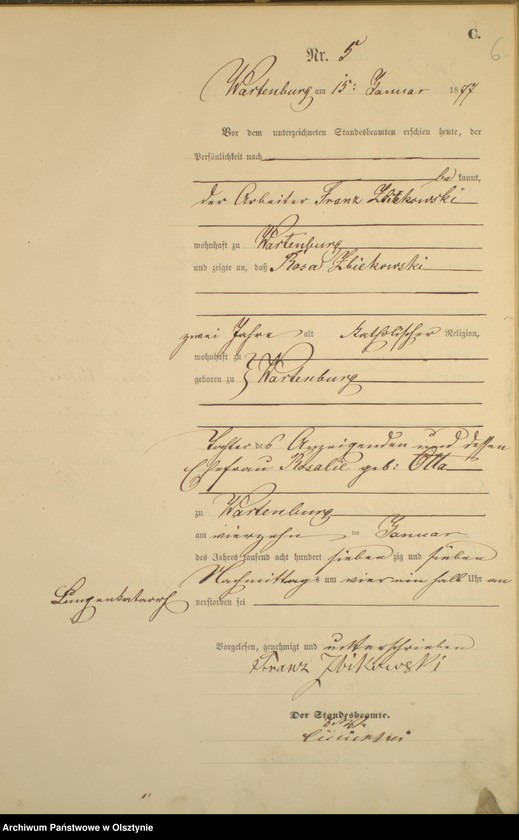 C.
6
Nr. 5
Wartenburg am 15: Januar 1877
Vor dem unterzeichneten Standesbeamten erschien heute, der
Persönlichkeit nach
be kannt,
der Arbeiter Franz Zbiekowski
wohnhaft zu Wartenburg
und zeigte an, daß Rosa Zbiekowski
zwei Jahre alt katholischer Religion,
wohnhaft zu
geboren zu Wartenburg
Tochter des Anzeigenden und dessen
Ehefrau Rosalie geb: Otta
zu Wartenburg
am vierzehn ten Januar
des Jahres tausend acht hundert sieben zig und sieben
Nachmittags um vier ein halb Uhr an
Lungenkatarrh verstorben sei
Vorgelesen, genehmigt und unterschrieben
Franz Zbikowski
Der Standesbeamte.
Archiwum Państwowe w Olsztynie